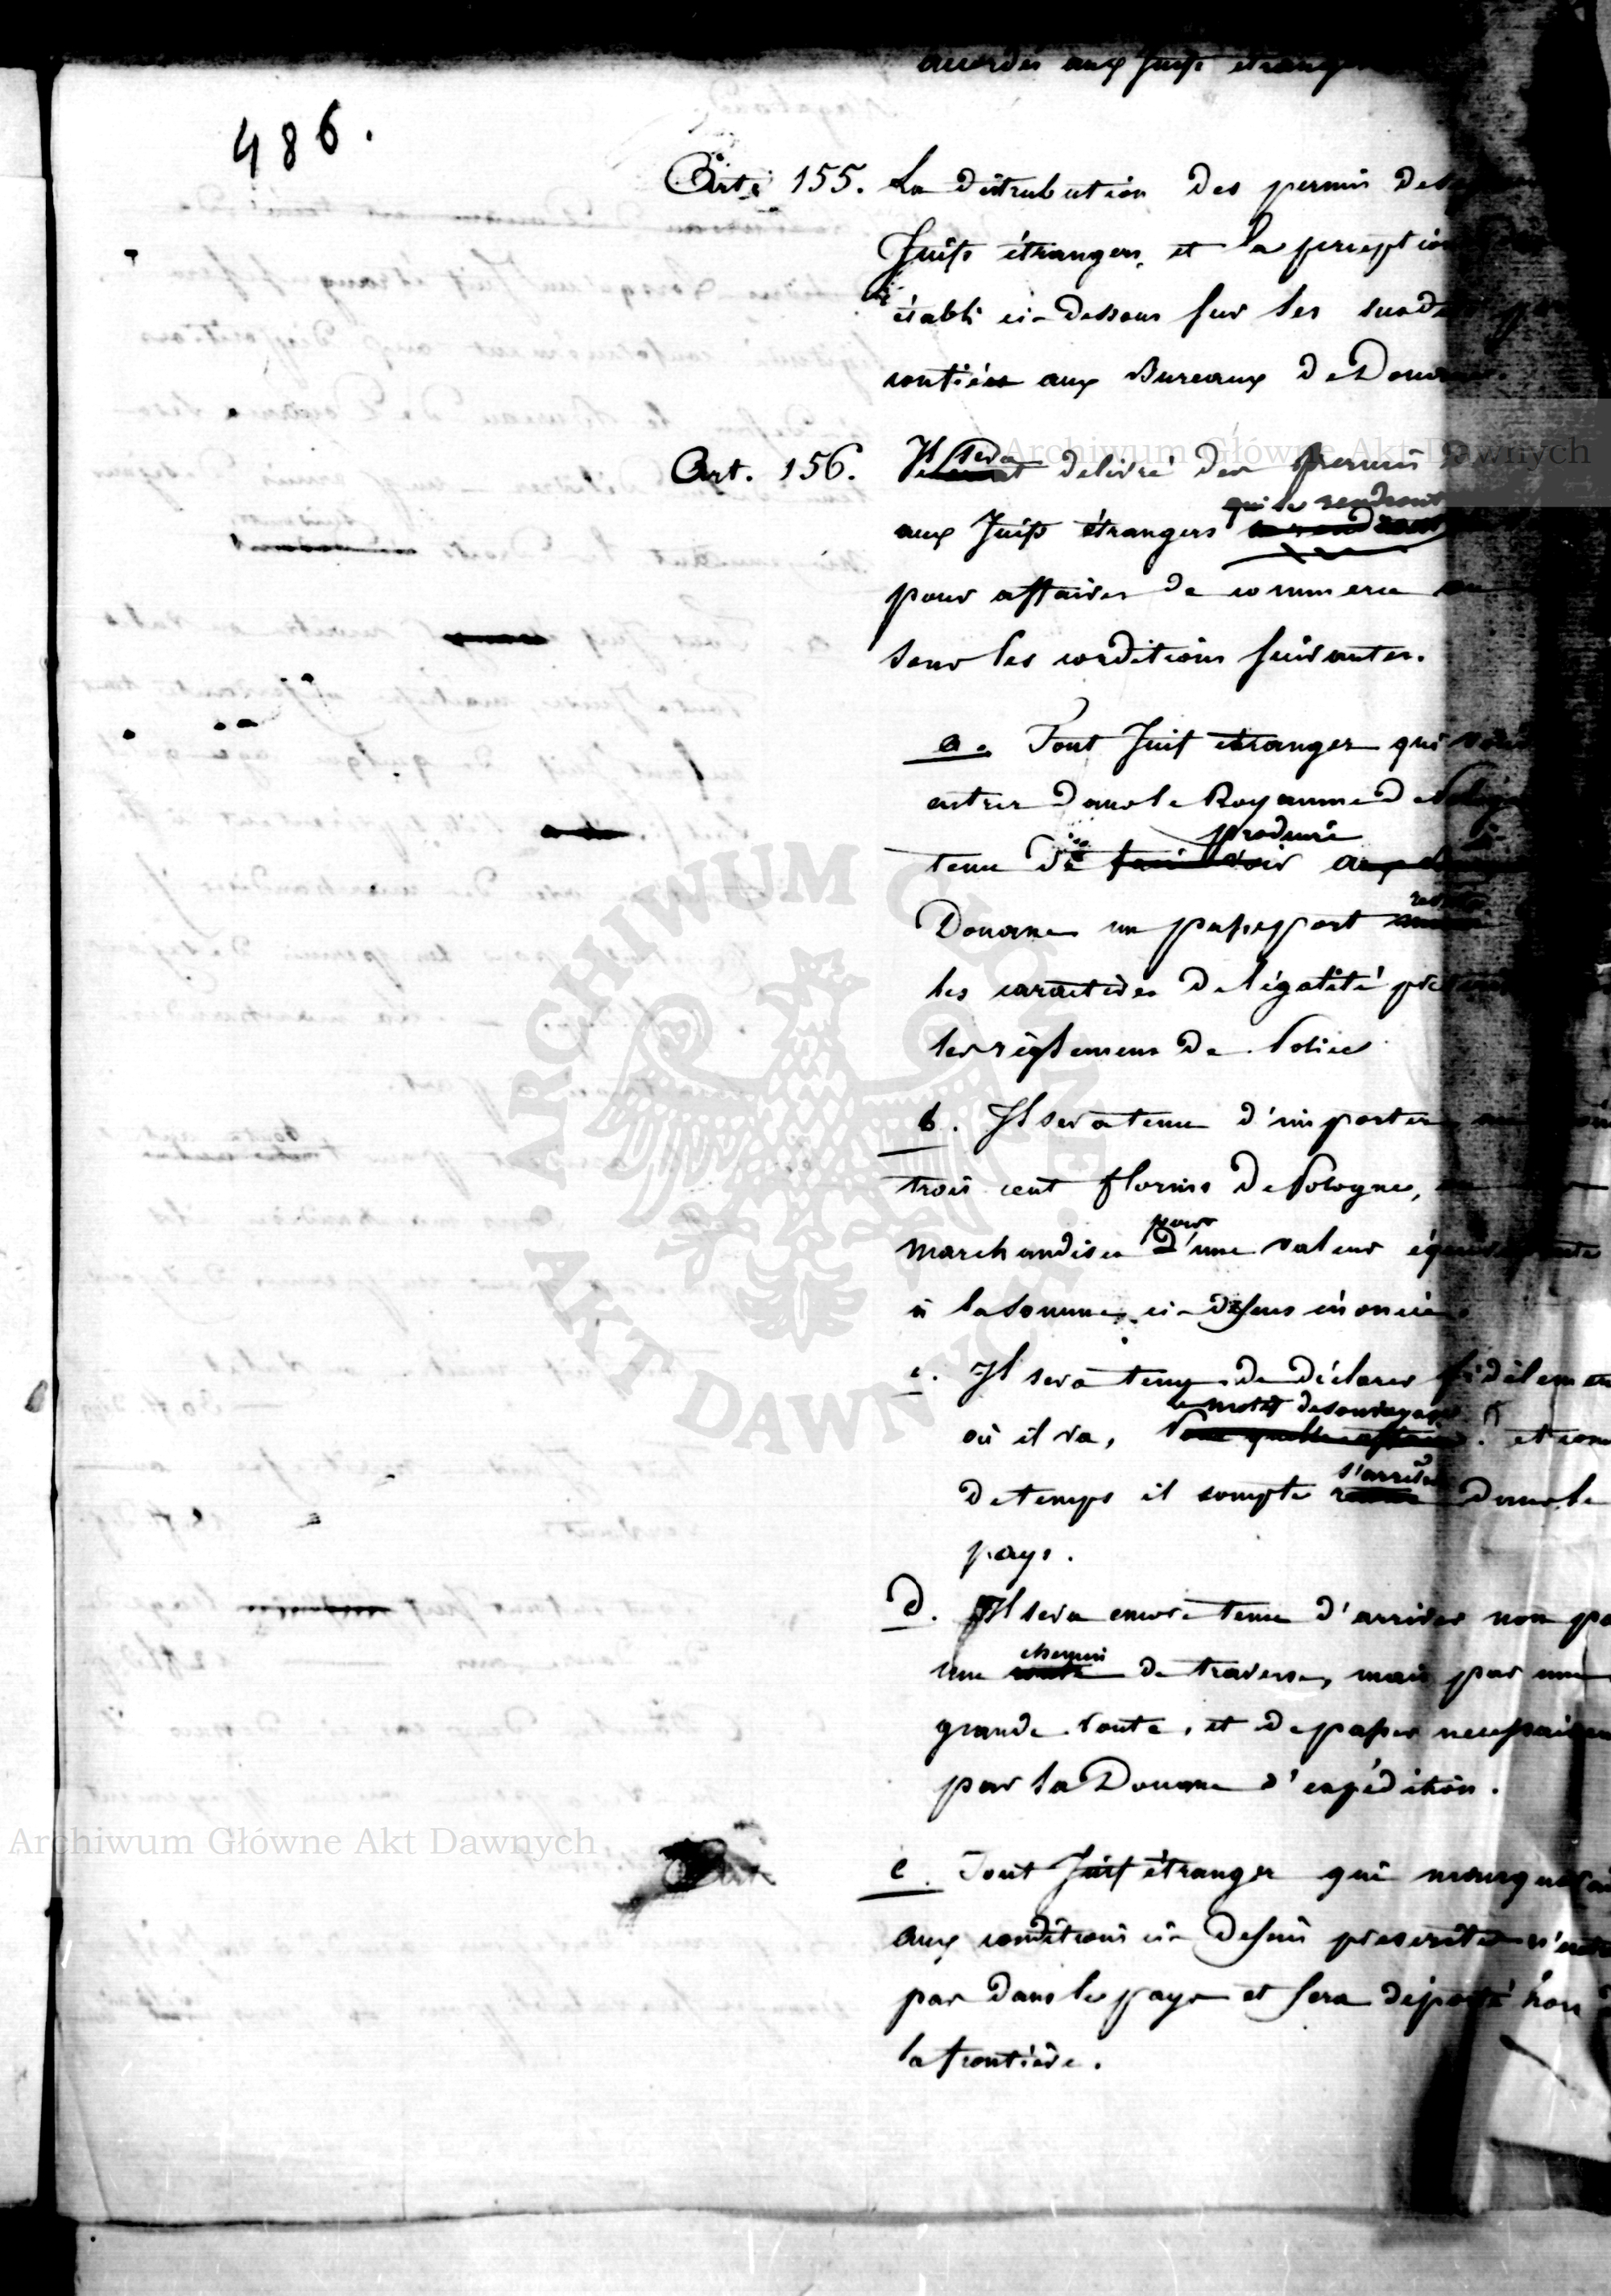 accordés aux Juifs étrang
486.
Art. 155. La distribution des permis de
Juifs étrangers, et la perception
établi ci-dessous sur les susd
confiées aux Bureaux de Douanes.
Archiwum Główne Akt Dawnych
Art. 156. Il sera delivré des permis
qui se rendront
aux Juifs étrangers
pour affaires de commerce
sous les conditions suivantes.
a. Tout Juif étranger qui
entrer dans le Royaume de Pologne
produire
tenu de
Douane un passeport
les caractères de légalité
les règlemens de Police
b. Il sera tenu d'importer
trois cent florins de Pologne,
pour
marchandises d'une valeur équivalente
à la somme ci-dessus énoncée.
c. Il sera tenu de déclarer fidèlemen
le motif de son voyage
où il va, pour quelle affaire et com
s'arrêter
de temps il compte dans le
pays.
d. Il sera encore tenu d'arriver non pa
chemin
une route de traverse, mais par une
grande route, et de passer necessairem
par la Douane d'expédition.
Archiwum Główne Akt Dawnych
e. Tout Juif étranger qui manquera
aux conditions ci-dessus prescrites n'entr
pas dans le pays et sera déporté hors d
la frontière.
ARCHIWUM GŁÓWNE AKT DAWNYCH